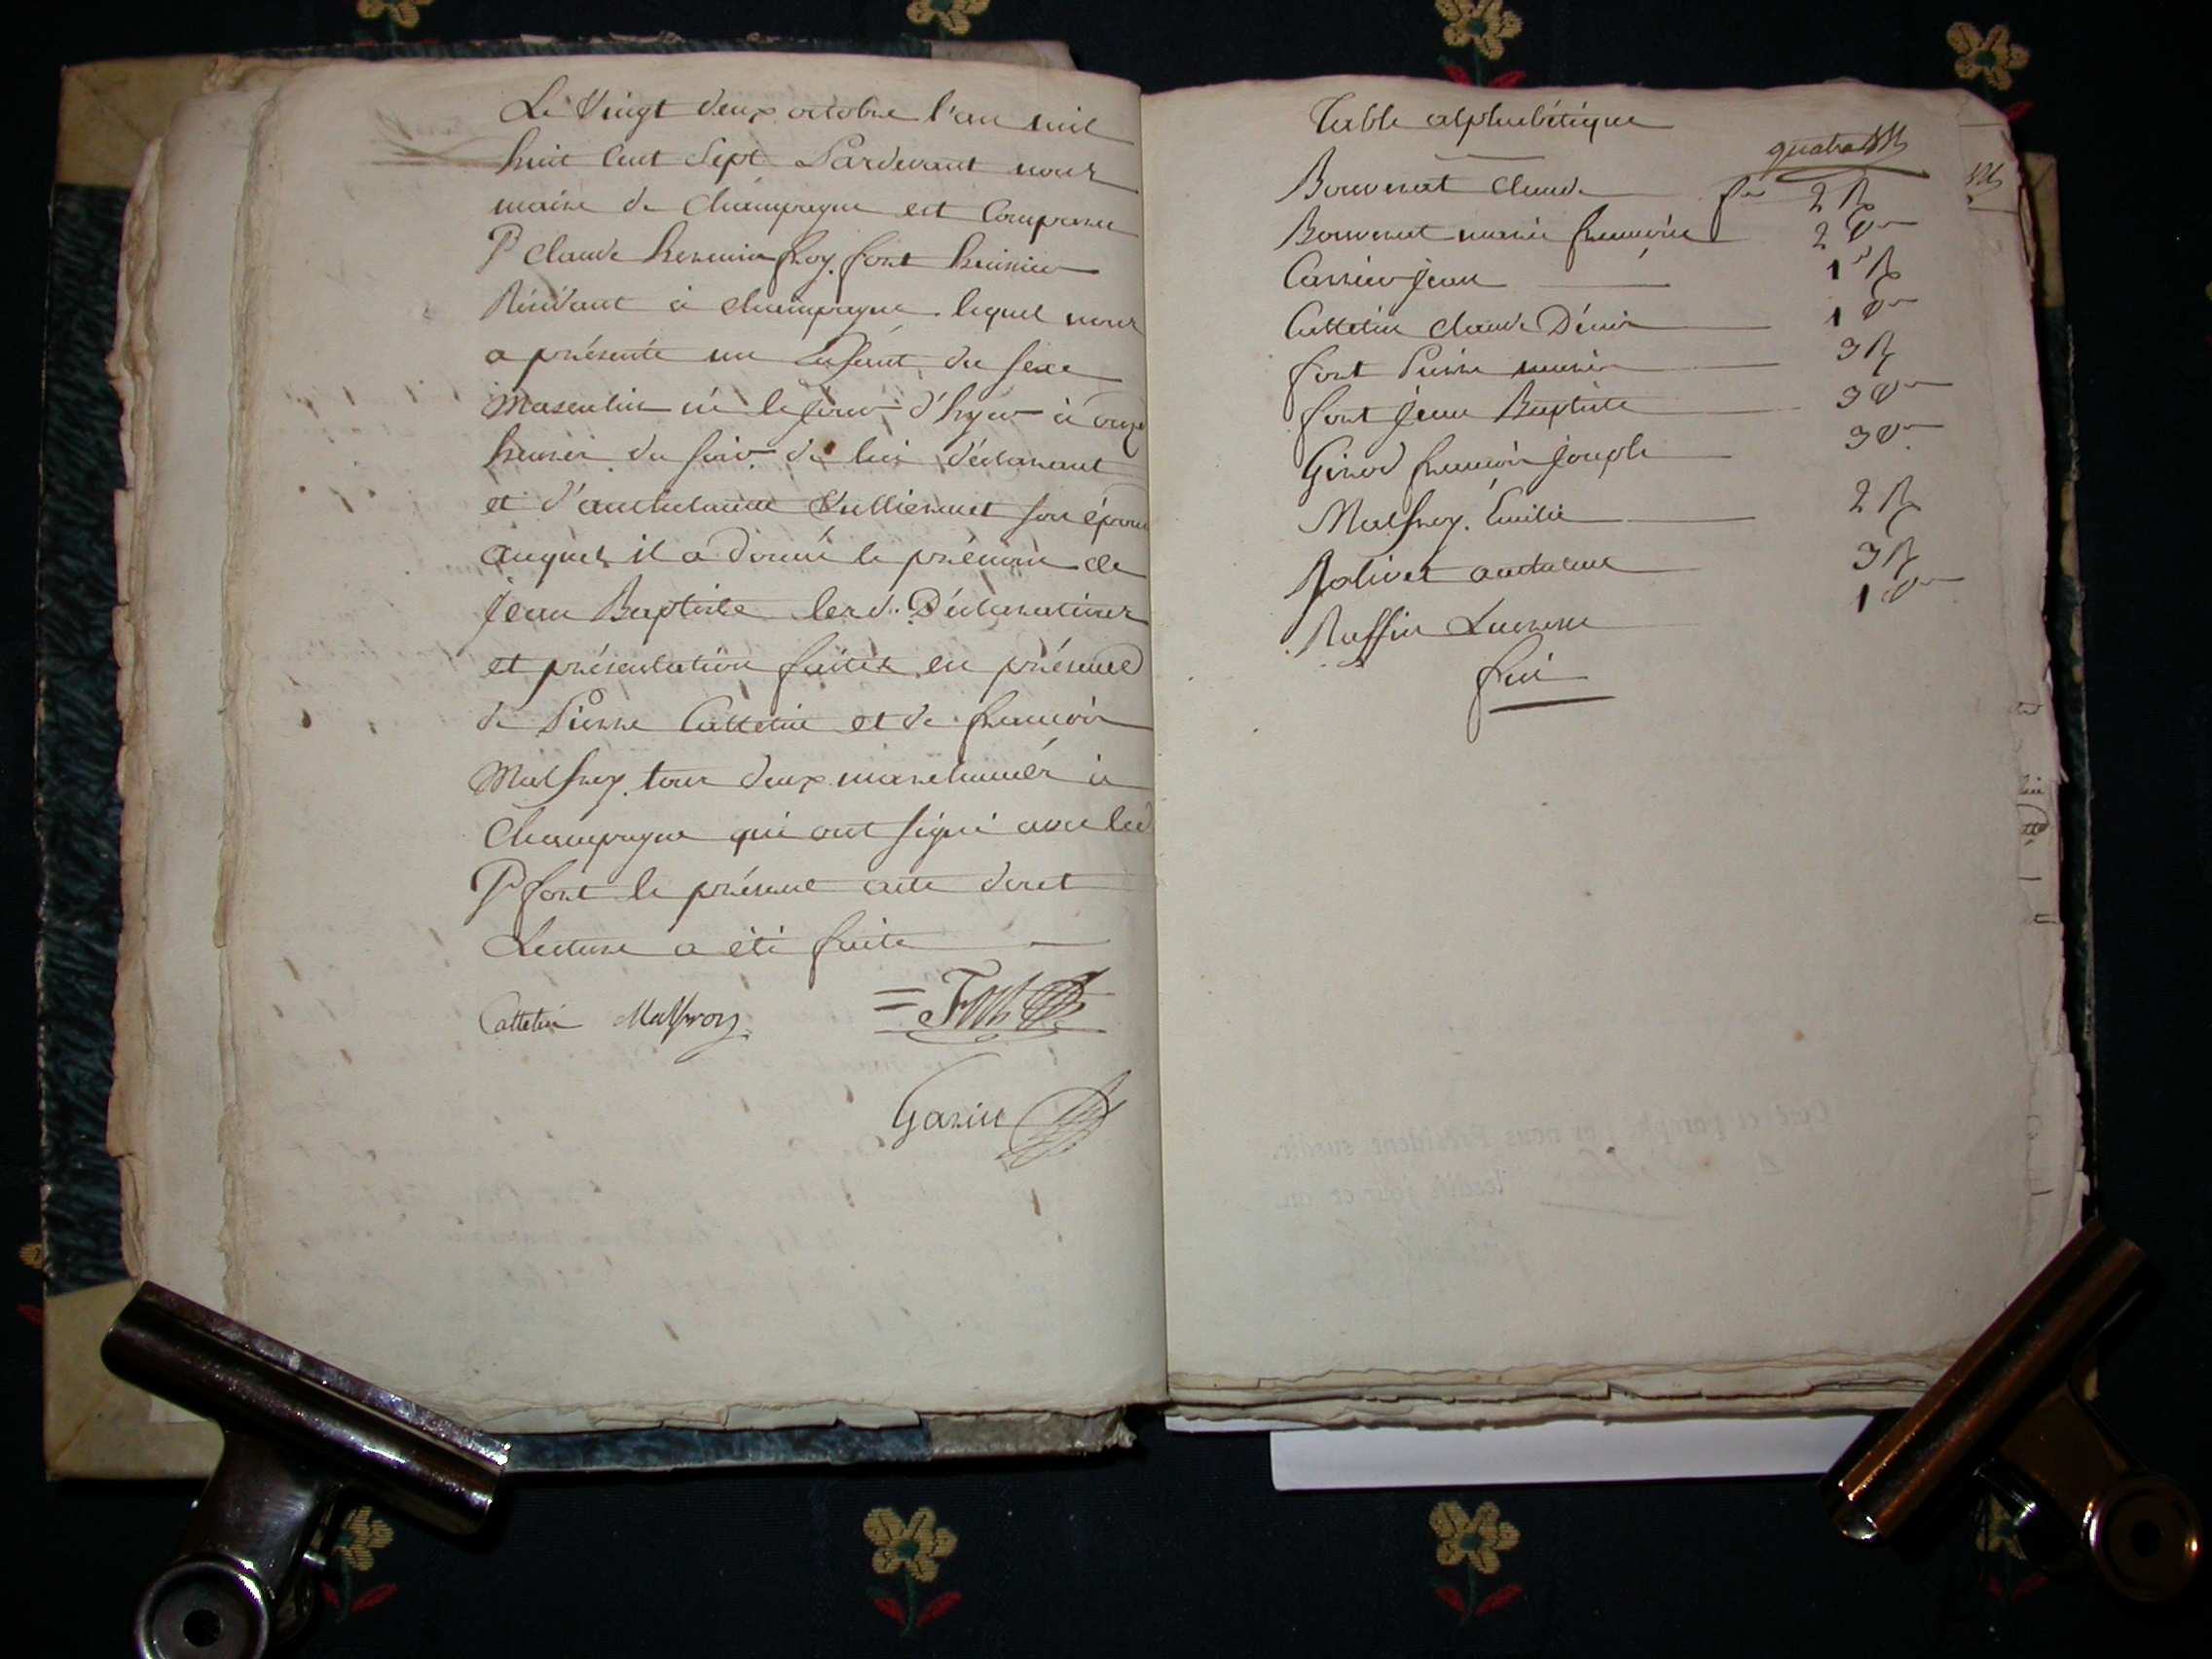 Le Vingt deux octobre l'an mil
huit Cent Sept Pardevant nous
maire de Champagne est Comparu
Sr Claude font huissier
Résidant à Champagne lequel nous
a présenté un Enfant du sexe
Masculin né le jour d'hyer à onze
heures du soir de lui déclarant
et d' Vuillermet son épouse
auquel il a donné le prénom de
Jean Baptiste lesd. Déclarations
et présentation faites en présence
de Pierre Cattelin et de francois
Malfroy tous deux à
Champagne qui ont signé avec led
Sr font le présent acte dont
Lecture a été faite
Cattelin Malfroy Font
Garin
Table alphabétique
quatre
Bouverat Claude fo 2 Ro
Bouvenat marie francoise 2 Vo
Carrier jean 1 Ro
Cattelin Claude Denis 1 Vo
font Pierre marie 3 Ro
font jean Baptiste 3 Vo
Girod francois joseph 3 Vo
Malfroy Emilie 2 Ro
Rolivet 3 Ro
Ruffin 1 Vo
fin